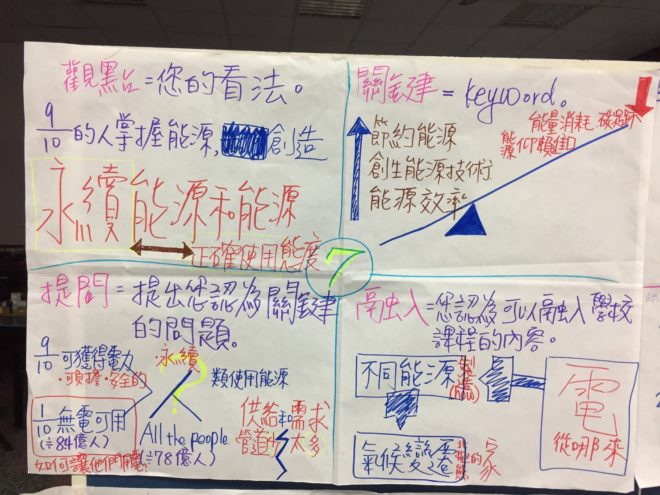 觀點=您的看法。
9/10的人掌握能源,創造
永續能源和能源
正確使用態度
關鍵=keyword。
能量消耗.碳足跡
能源仰賴進口
節約能源
創生能源技術
能源效率
7
提問=提出您認為關鍵
的問題。
9/10可獲得電力
·可負擔·安全的
·永續
類使用能源
?
1/10無電可用
(≒8.4億人)
如何讓他們用電
All the people
(≒78億人)
供給和需求
管道少 太多
融入=您認為可以融入學校
課程的內容。
不同能源(製造)
電
從哪來
氣候變遷
的家